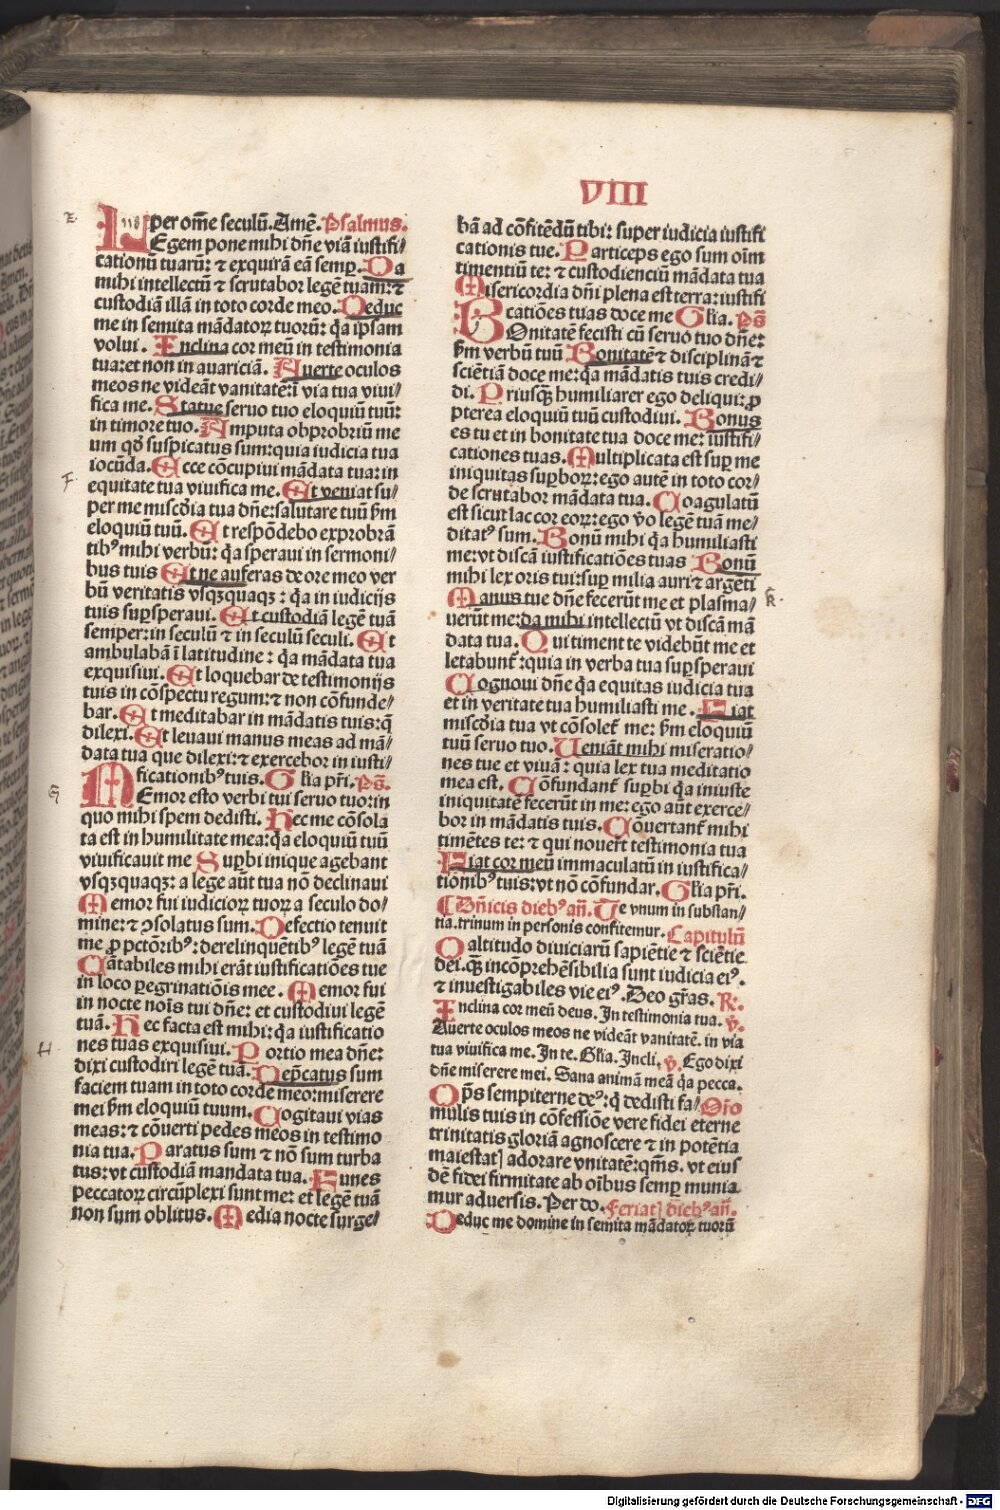 VIII
per om̄e seculū. Amē. Psalmus.
LEgem pone mihi dn̄e viā iustifi/
cationū tuarū: ⁊ exquirā eā semꝑ. Da
mihi intellectū ⁊ scrutabor legē tuam: ⁊
custodiā illā in toto corde meo. Deduc
me in semita mādatoꝝ tuorū: q̄a ip̄sam
volui. Inclina cor meū in testimonia
tua: et non in auariciā. Auerte oculos
meos ne videāt vanitatē: ī via tua viui/
fica me. Statue seruo tuo eloquiū tuū:
in timore tuo. Amputa obprobriū me
um qd̄ suspicatus sum: quia iudicia tua
iocūda. Ecce cōcupiui mādata tua: in
equitate tua viuifica me. Et veniat su/
per me miscd̄ia tua dn̄e: salutare tuū ẜm
eloquiū tuū. Et respōdebo exprobrā
tibꝰ mihi verbū: q̄a speraui in sermoni/
bus tuis Et ne auferas de ore meo ver
bū veritatis vsqꝫquaqꝫ: q̄a in iudicijs
tuis suꝑsperaui. Et custodiā legē tuā
semper: in seculū ⁊ in seculū seculi. Et
ambulabā ī latitudine: q̄a mādata tua
exquisiui. Et loquebar de testimonijs
tuis in cōspectu regum: ⁊ non cōfunde/
bar. Et meditabar in mādatis tuis: q̄
dilexi. Et leuaui manus meas ad mā/
data tua que dilexi: ⁊ exercebor in iusti/
ficationibꝰ tuis. Gl̄ia pr̄i. Ps̄.
MEmor esto verbi tui seruo tuo: in
quo mihi spem dedisti. Hec me cōsola
ta est in humilitate mea: q̄a eloquiū tuū
viuificauit me Suꝑbi inique agebant
vsqꝫquaqꝫ: a lege aūt tua nō declinaui
Memor fui iudicioꝝ tuoꝝ a seculo do/
mine: ⁊ ꝯsolatus sum. Defectio tenuit
me ꝓ pctōribꝰ: derelinquētibꝰ legē tuā
Cātabiles mihi erāt iustificatiōes tue
in loco ꝑegrinatiōis mee. Memor fui
in nocte noīs tui dn̄e: et custodiui legē
tuā. Hec facta est mihi: q̄a iustificatio
nes tuas exquisiui. Portio mea dn̄e:
dixi custodiri legē tuā. Dep̄catus sum
faciem tuam in toto corde meo: miserere
mei ẜm eloquiū tuum. Cogitaui vias
meas: ⁊ cōuerti pedes meos in testimo
nia tua. Paratus sum ⁊ nō sum turba
tus: vt custodiā mandata tua. Funes
peccatoꝝ circūplexi sunt me: et legē tuā
non sum oblitus. Media nocte surge/
bā ad cōfitēdū tibi: super iudicia iustifi
cationis tue. Particeps ego sum oīm
timentiū te: ⁊ custodienciū mādata tua
Misericordia dn̄i plena est terra: iustifi
catiōes tuas doce me Gl̄ia. Ps̄
BOnitatē fecisti cū seruo tuo dn̄e:
ẜm verbū tuū Bonitatē ⁊ disciplinā ⁊
sciētiā doce me: q̄a mādatis tuis credi/
di. Priusqꝫ humiliarer ego deliqui: ꝓ
pterea eloquiū tuū custodiui. Bonus
es tu et in bonitate tua doce me: iustifi/
cationes tuas. Multiplicata est suꝑ me
iniquitas suꝑborꝝ: ego autē in toto cor/
de scrutabor mādata tua. Coagulatū
est sicut lac cor eorꝝ: ego v̄o legē tuā me/
ditatꝰ sum. Bonū mihi q̄a humiliasti
me: vt discā iustificatiōes tuas Bonū
mihi lex oris tui: suꝑ milia auri ⁊ argēti
Manus tue dn̄e fecerūt me et plasma/
uerūt me: da mihi intellectū vt discā mā
data tua. Qui timent te videbūt me et
letabunt̄: quia in verba tua suꝑsperaui
Cognoui dn̄e q̄a equitas iudicia tua
et in veritate tua humiliasti me. Fiat
miscd̄ia tua vt cōsolet̄ me: ẜm eloquiū
tuū seruo tuo. Ueniāt mihi miseratio/
nes tue et viuā: quia lex tua meditatio
mea est. Cōfundant̄ suꝑbi q̄a iniuste
iniquitatē fecerūt in me: ego aūt exerce/
bor in mādatis tuis. Cōuertant̄ mihi
timētes te: ⁊ qui nouert̄ testimonia tua
Fiat cor meū immaculatū in iustifica/
tionibꝰ tuis: vt nō cōfundar. Gl̄ia pr̄i.
⸿ Dn̄icis diebꝰ an̄. Te vnum in substan/
tia. trinum in personis confitemur. Capitulū
O altitudo diuiciarū sapiētie ⁊ sciētie
dei. qꝫ incōprehēsibilia sunt iudicia eiꝰ.
⁊ inuestigabiles vie eiꝰ. Deo gr̄as. R.
Inclina cor meū deus. In testimonia tua. v̄.
Auerte oculos meos ne videāt vanitatē. in via
tua viuifica me. In te. Gl̄ia. Incli. v̄. Ego dixi
dn̄e miserere mei. Sana animā meā q̄a pecca.
Op̄s sempiterne deꝰ: q̄ dedisti fa/ Or̄o
mulis tuis in cōfessiōe vere fidei eterne
trinitatis gloriā agnoscere ⁊ in potētia
maiestatꝭ adorare vnitatē: qm̄s. vt eius
dē fidei firmitate ab oībus semꝑ munia
mur aduersis. Per do. Feriatꝭ diebꝰ an̄.
Deduc me domine in semita mādatoꝝ tuorū
E.
F.
G
H
K.
Digitalisierung gefördert durch die Deutsche Forschungsgemeinschaft - DFG